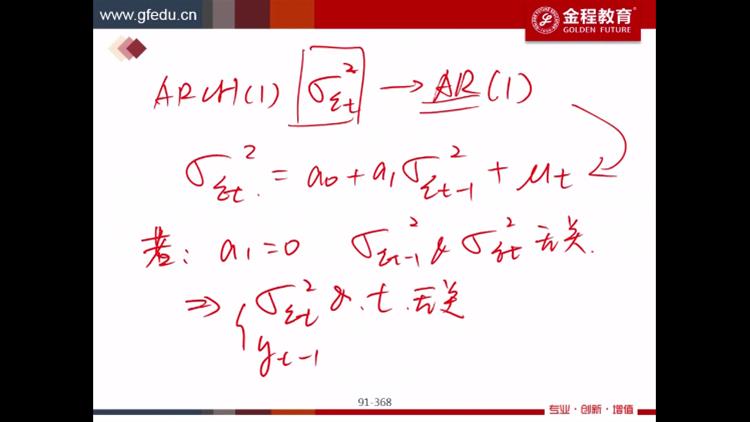 www.gfedu.cn
金程教育®
GOLDEN FUTURE
ARCH(1) σ²εt → AR(1)
σ²εt = a₀ + a₁σ²εt-1 + μt
若: a₁=0 σ²εt-1 & σ²εt 无关.
⇒ σ²εt & t 无关
yt-1
91-368
专业·创新·增值